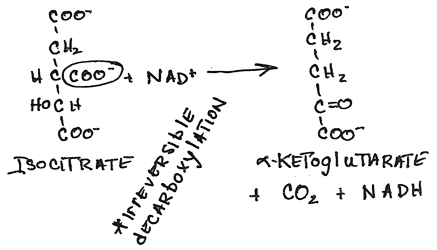 COO⁻
CH₂
H C COO⁻ + NAD⁺
HO C H
COO⁻
ISOCITRATE
*IRREVERSIBLE
dECARBOXYLATION
COO⁻
CH₂
CH₂
C=O
COO⁻
α-KETOglUTARATE
+ CO₂ + NADH